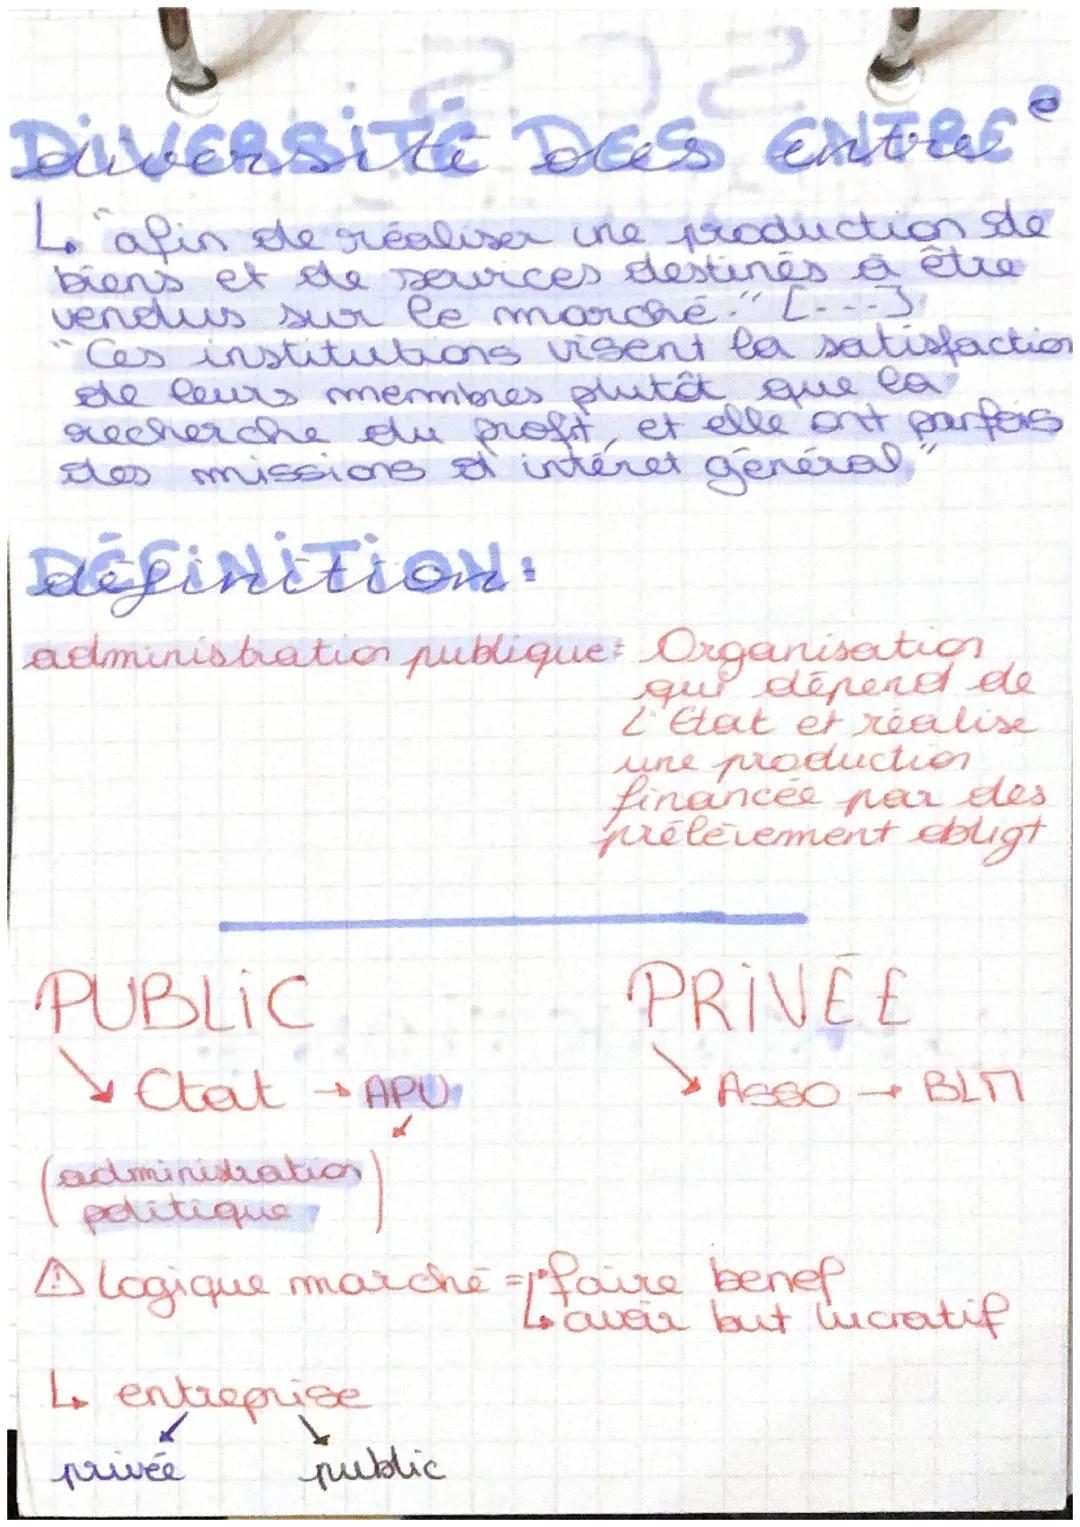 DiVERSiTÉ DES ENTREᵉ
diversité des entre
↳ "afin de réaliser une production de
biens et de services destinés à être
vendus sur le marché." [...]
"Ces institutions visent la satisfaction
de leurs membres plutôt que la
recherche du profit, et elle ont parfois
des missions d'intéret général."
DÉFiNiTiON:
définition
administration publique: Organisation
qui dépend de
L'Etat et réalise
une production
financée par des
prélèvement obligt
PUBLiC PRiVÉE
↘ Etat → APU ↘ ASSO → BLM
(administration
politique)
⚠ Logique marché = ↱ faire benef
↳ avoir but lucratif
↳ entreprise
privée public